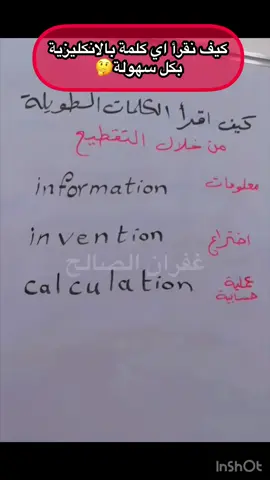 كيف نقرأ اي كلمة بالانكليزية
بكل سهولة🤔
كيف اقرأ الكلمات الطويلة
من خلال التقطيع
information معلومات
invention اختراع
غفران الصالح
calculation عملية حسابية
InShOt